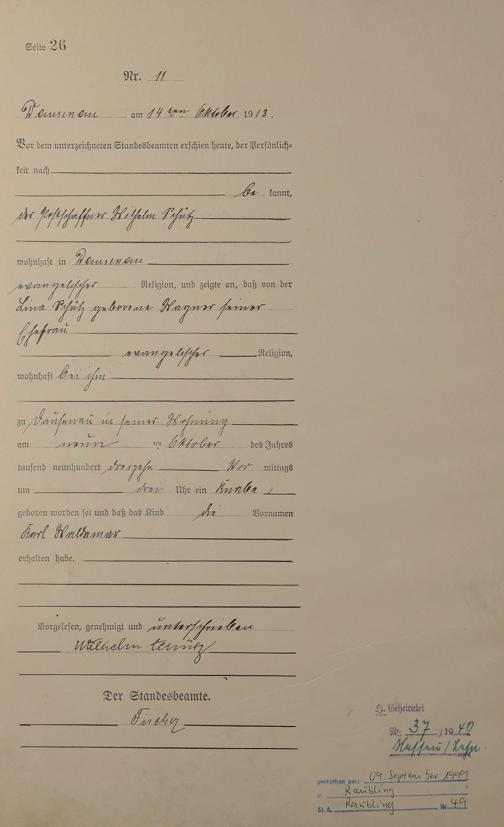 Seite 26
Nr. 11
Dausenau am 14 ten Oktober 1913.
Vor dem unterzeichneten Standesbeamten erschien heute, der Persönlich=
keit nach
be kannt,
der Postschaffner Wilhelm Schütz
wohnhaft in Dausenau
evangelischer Religion, und zeigte an, daß von der
Lina Schütz geborene Wagner seiner
Ehefrau
evangelischer Religion,
wohnhaft bei ihm
zu Dausenau in seiner Wohnung
am neun ten Oktober des Jahres
tausend neunhundert dreizehn Vor mittags
um drei Uhr ein Knabe
geboren worden sei und daß das Kind die Vornamen
Karl Waldemar
erhalten habe.
Vorgelesen, genehmigt und unterschrieben
Wilhelm Schütz
Der Standesbeamte.
H. Geheiratet
Nr. 37 / 1940
Nassau/Lahn
gestorben am: 09. September 1991
in Raubling
St. A. Raubling Nr. 49